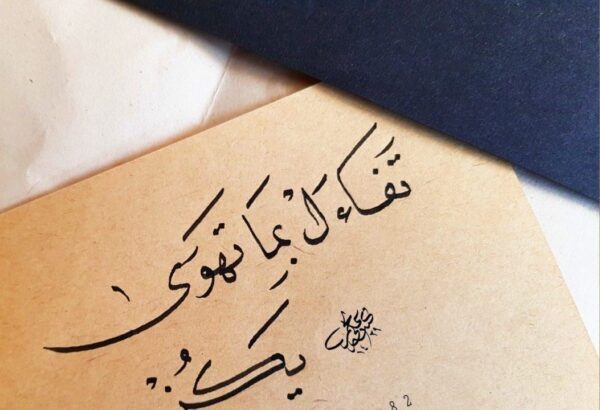 تَفاءَلْ بِمَا تَهْوَى
يَكُنْ
82